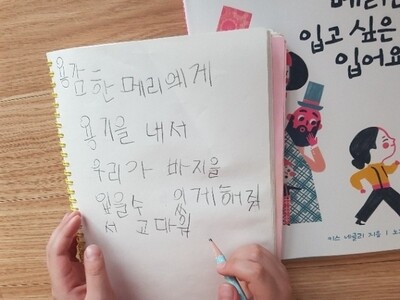 용감한 메리에게
용기을 내서
우리가 바지을
입을수 있게해줘
서 고마워
메리는
입고 싶은
입어요
키스 네글리 지음 |